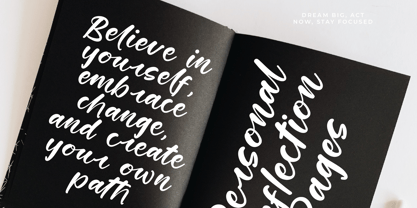 DREAM BIG, ACT
NOW, STAY FOCUSED
Believe in
yourself,
embrace
change,
and create
your own
path
Personal
Reflection
Pages